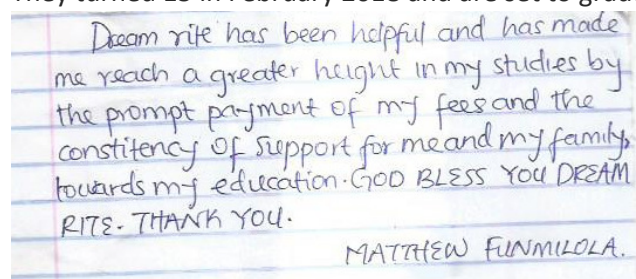 Dream rite has been helpful and has made
me reach a greater height in my studies by
the prompt payment of my fees and the
constitency of support for me and my family,
towards my education. GOD BLESS YOU DREAM
RITE. THANK YOU.
MATTHEW FUNMILOLA.